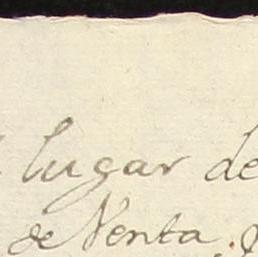 lugar de
de Venta